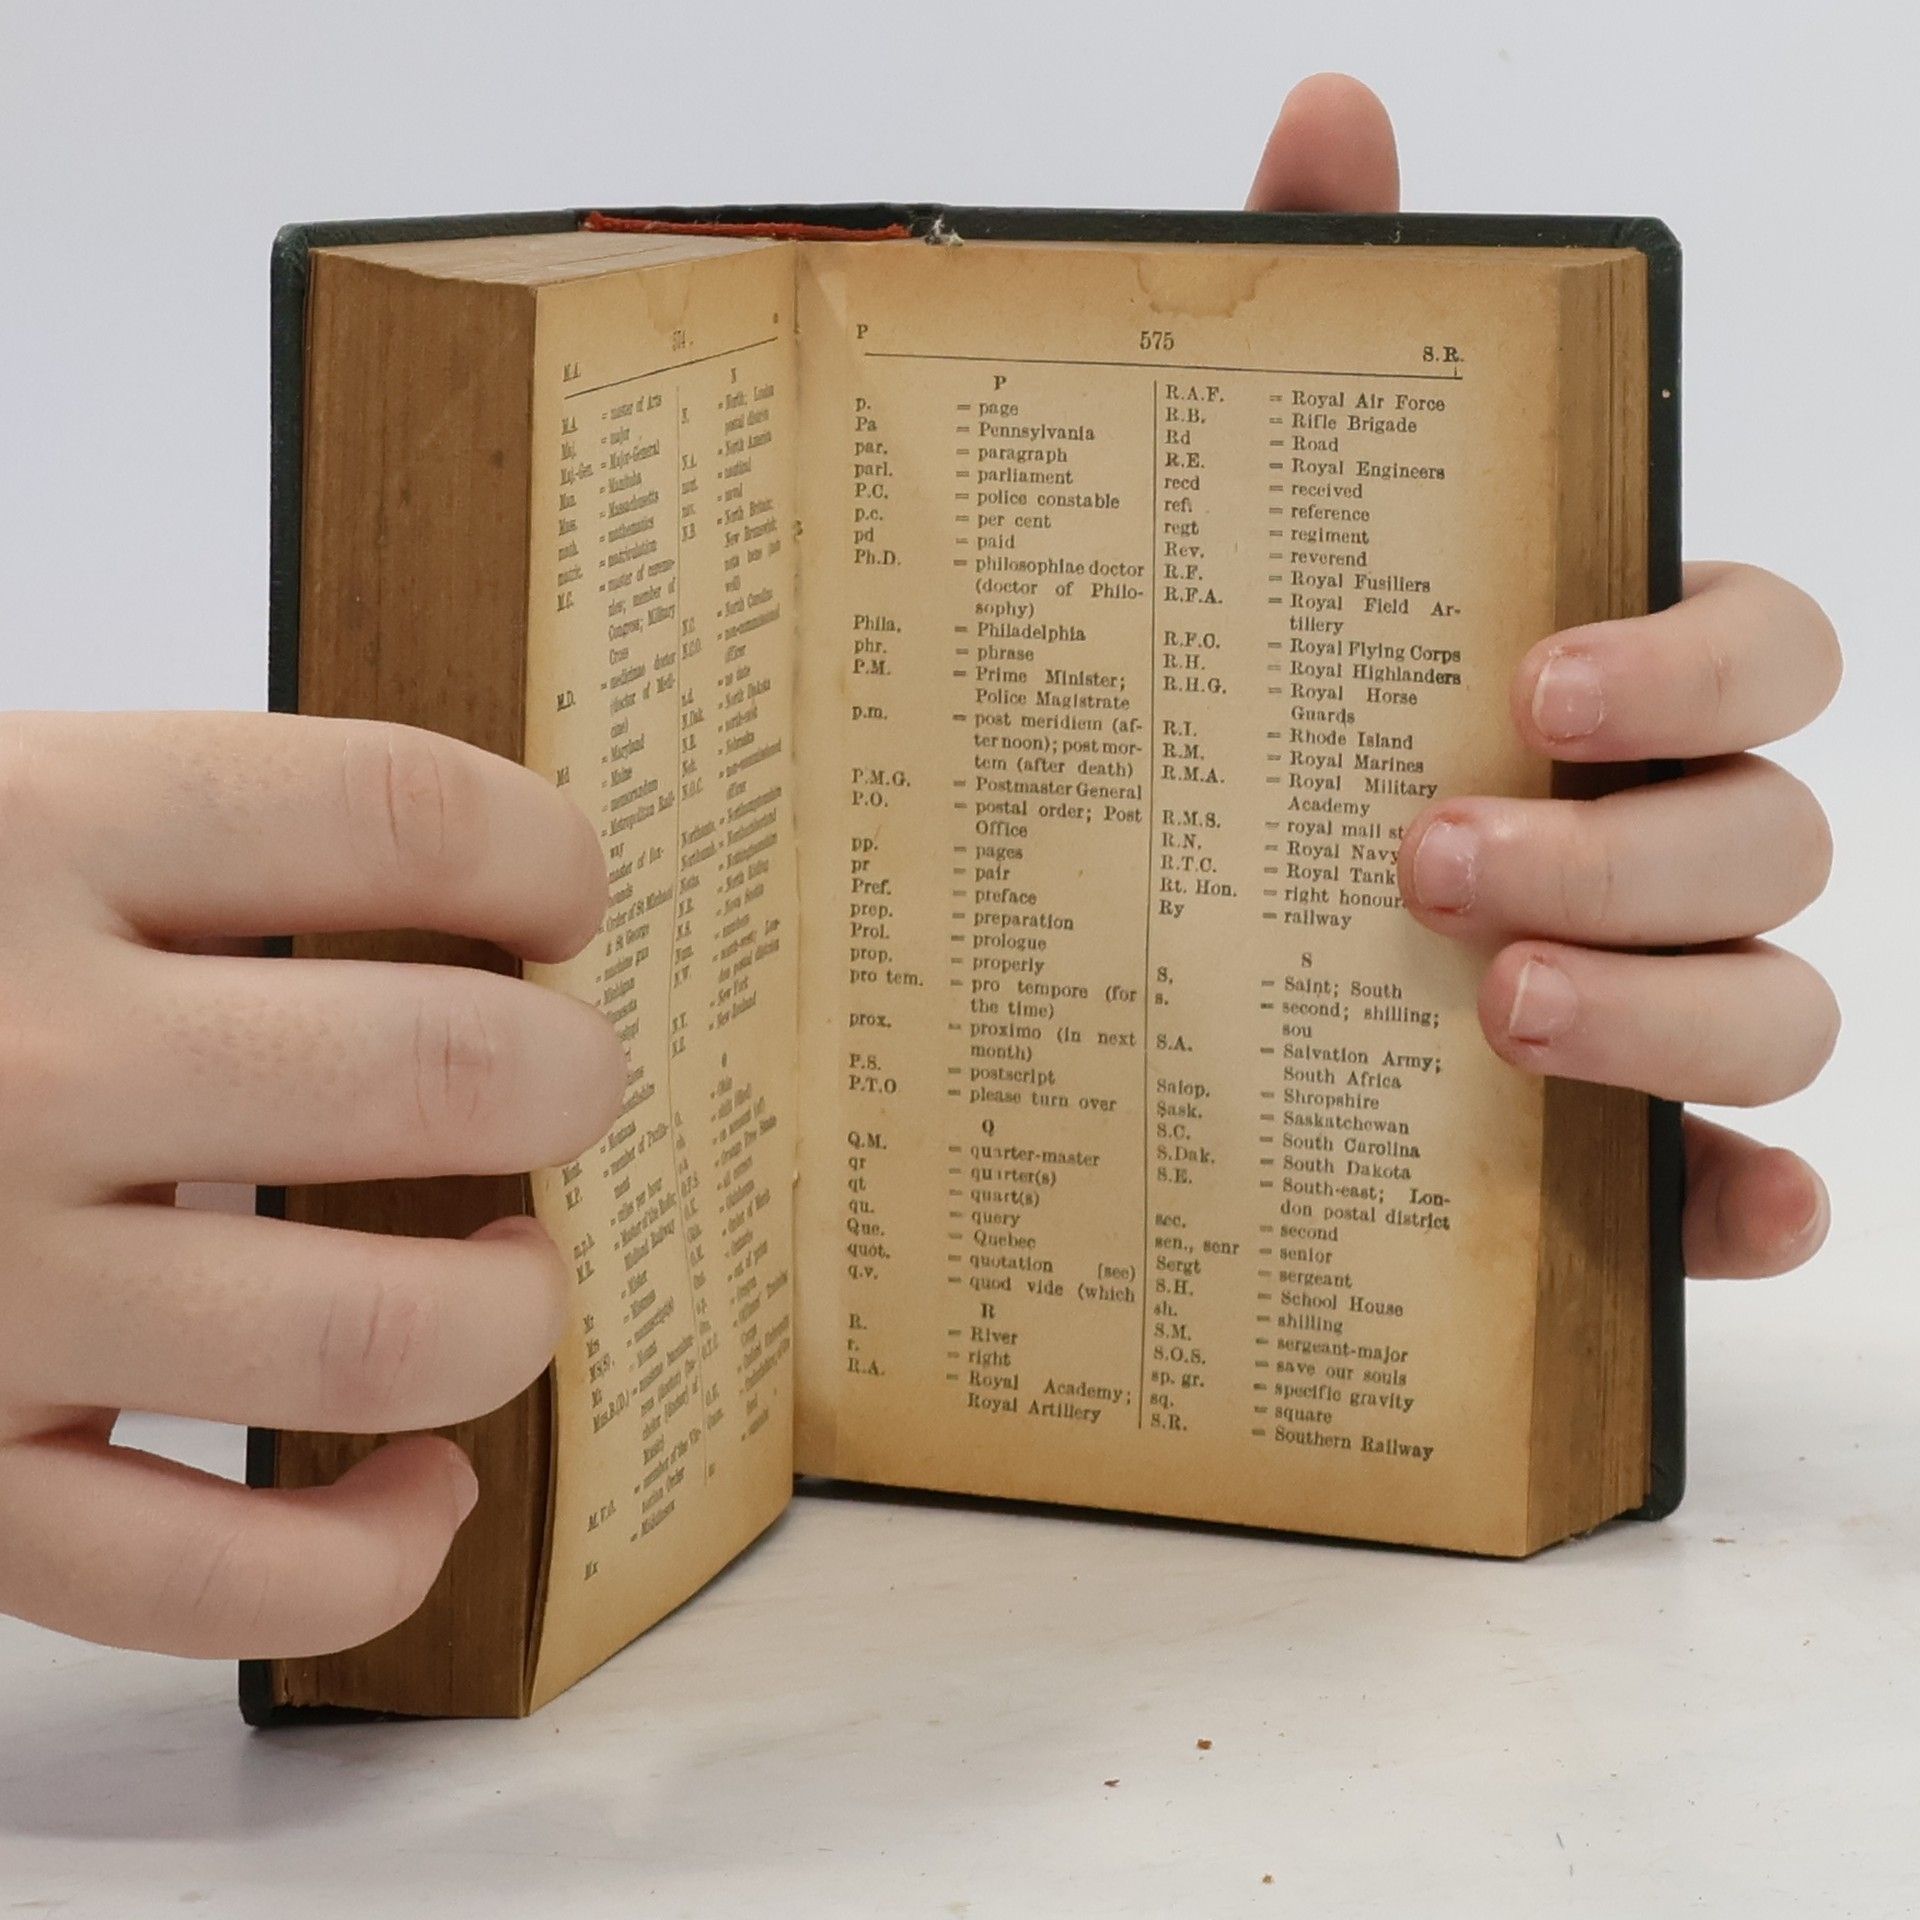 M.A. 574
M.A. = master of Arts
Maj. = major
Maj.-Gen. = Major-General
Man. = Manitoba
Mass. = Massachusetts
math. = mathematics
matric. = matriculation
M.C. = master of ceremo-
nies; member of
Congress; Military
Cross
M.D. = medicinae doctor
(doctor of Medi-
cine)
Md = Maryland
= Maine
= memorandum
= Metropolitan Rail-
way
master of fox-
hounds
Order of St Michael
& St George
= machine gun
= Michigan
Mont. = Montana
M.P. = member of Parlia-
ment
m.p.h. = miles per hour
M.R. = Master of the Rolls;
Midland Railway
Mr = Mister
Mrs = Mistress
MS(S). = manuscript(s)
Mt = Mount
M.V.O. = member of the Vic-
torian Order
Mx = Middlesex
N
N. = North; London
postal district
N.A. = North America
naut. = nautical
nav. = naval
N.B. = North Britain;
New Brunswick;
nota bene (note
well)
N.C. = North Carolina
N.C.O. = non-commissioned
officer
n.d. = no date
N.Dak. = North Dakota
N.E. = north-east
Neb. = Nebraska
N.O.C. = non-commissioned
officer
Northants. = Northamptonshire
Northumb. = Northumberland
Notts. = Nottinghamshire
N.R. = North Riding
N.S. = Nova Scotia
Num. = numbers
N.W. = north-west; Lon-
don postal district
N.Y. = New York
N.Z. = New Zealand
O
O. = Ohio
P 575 S.R.
P
p. = page
Pa = Pennsylvania
par. = paragraph
parl. = parliament
P.C. = police constable
p.c. = per cent
pd = paid
Ph.D. = philosophiae doctor
(doctor of Philo-
sophy)
Phila. = Philadelphia
phr. = phrase
P.M. = Prime Minister;
Police Magistrate
p.m. = post meridiem (af-
ternoon); post mor-
tem (after death)
P.M.G. = Postmaster General
P.O. = postal order; Post
Office
pp. = pages
pr = pair
Pref. = preface
prep. = preparation
Prol. = prologue
prop. = properly
pro tem. = pro tempore (for
the time)
prox. = proximo (in next
month)
P.S. = postscript
P.T.O = please turn over
Q
Q.M. = quarter-master
qr = quarter(s)
qt = quart(s)
qu. = query
Que. = Quebec
quot. = quotation [see)
q.v. = quod vide (which
R
R. = River
r. = right
R.A. = Royal Academy;
Royal Artillery
R.A.F. = Royal Air Force
R.B. = Rifle Brigade
Rd = Road
R.E. = Royal Engineers
recd = received
ref. = reference
regt = regiment
Rev. = reverend
R.F. = Royal Fusiliers
R.F.A. = Royal Field Ar-
tillery
R.F.C. = Royal Flying Corps
R.H. = Royal Highlanders
R.H.G. = Royal Horse
Guards
R.I. = Rhode Island
R.M. = Royal Marines
R.M.A. = Royal Military
Academy
R.M.S. = royal mail st
R.N. = Royal Navy
R.T.C. = Royal Tank
Rt. Hon. = right honour
Ry = railway
S
S. = Saint; South
s. = second; shilling;
sou
S.A. = Salvation Army;
South Africa
Salop. = Shropshire
Sask. = Saskatchewan
S.C. = South Carolina
S.Dak. = South Dakota
S.E. = South-east; Lon-
don postal district
sec. = second
sen., senr = senior
Sergt = sergeant
S.H. = School House
sh. = shilling
S.M. = sergeant-major
S.O.S. = save our souls
sp. gr. = specific gravity
sq. = square
S.R. = Southern Railway